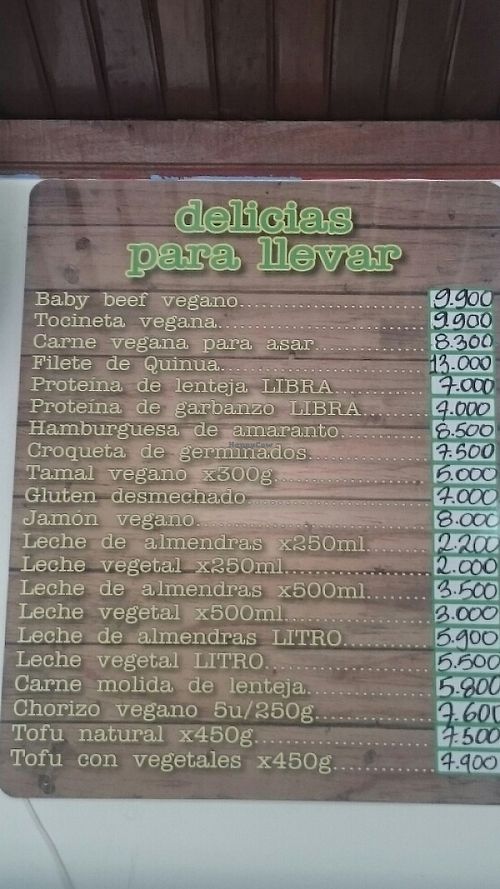 delicias
para llevar
Baby beef vegano 9.900
Tocineta vegana 9.900
Carne vegana para asar 8.300
Filete de Quinua 13.000
Proteína de lenteja LIBRA 7.000
Proteína de garbanzo LIBRA 7.000
Hamburguesa de amaranto 8.500
Croqueta de germinados 7.500
Tamal vegano x300g 5.000
Gluten desmechado 7.000
Jamón vegano 8.000
Leche de almendras x250ml 2.200
Leche vegetal x250ml 2.000
Leche de almendras x500ml 3.500
Leche vegetal x500ml 3.000
Leche de almendras LITRO 5.900
Leche vegetal LITRO 5.500
Carne molida de lenteja 5.800
Chorizo vegano 5u/250g 7.600
Tofu natural x450g 7.500
Tofu con vegetales x450g 7.900